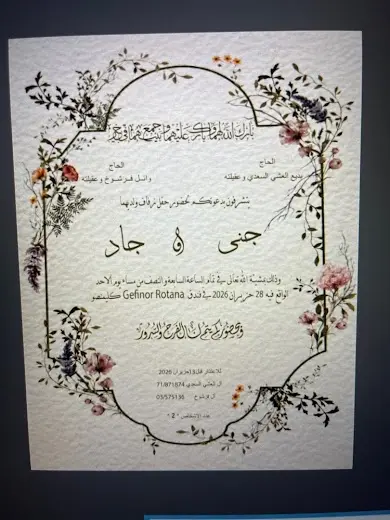 بارك الله لهما وبارك عليهما وجمع بينهما في خير
الحاج
بديع العشي السعدي وعقيلته
الحاج
وائل فرشوخ وعقيلته
يتشرفون بدعوتكم لحضور حفل زفاف ولديهما
جنى و جاد
وذلك بمشيئة الله تعالى في تمام الساعة السابعة والنصف من مساء يوم الاحد
الواقع فيه 28 حزيران 2026 في فندق Gefinor Rotana كليمنصو
وبحضوركم يتم لنا الفرح والسرور
للاعتذار قبل 13 حزيران 2026
ال العشي السعدي 71/871874
ال فرشوخ 03/575136
عدد الاشخاص "2"